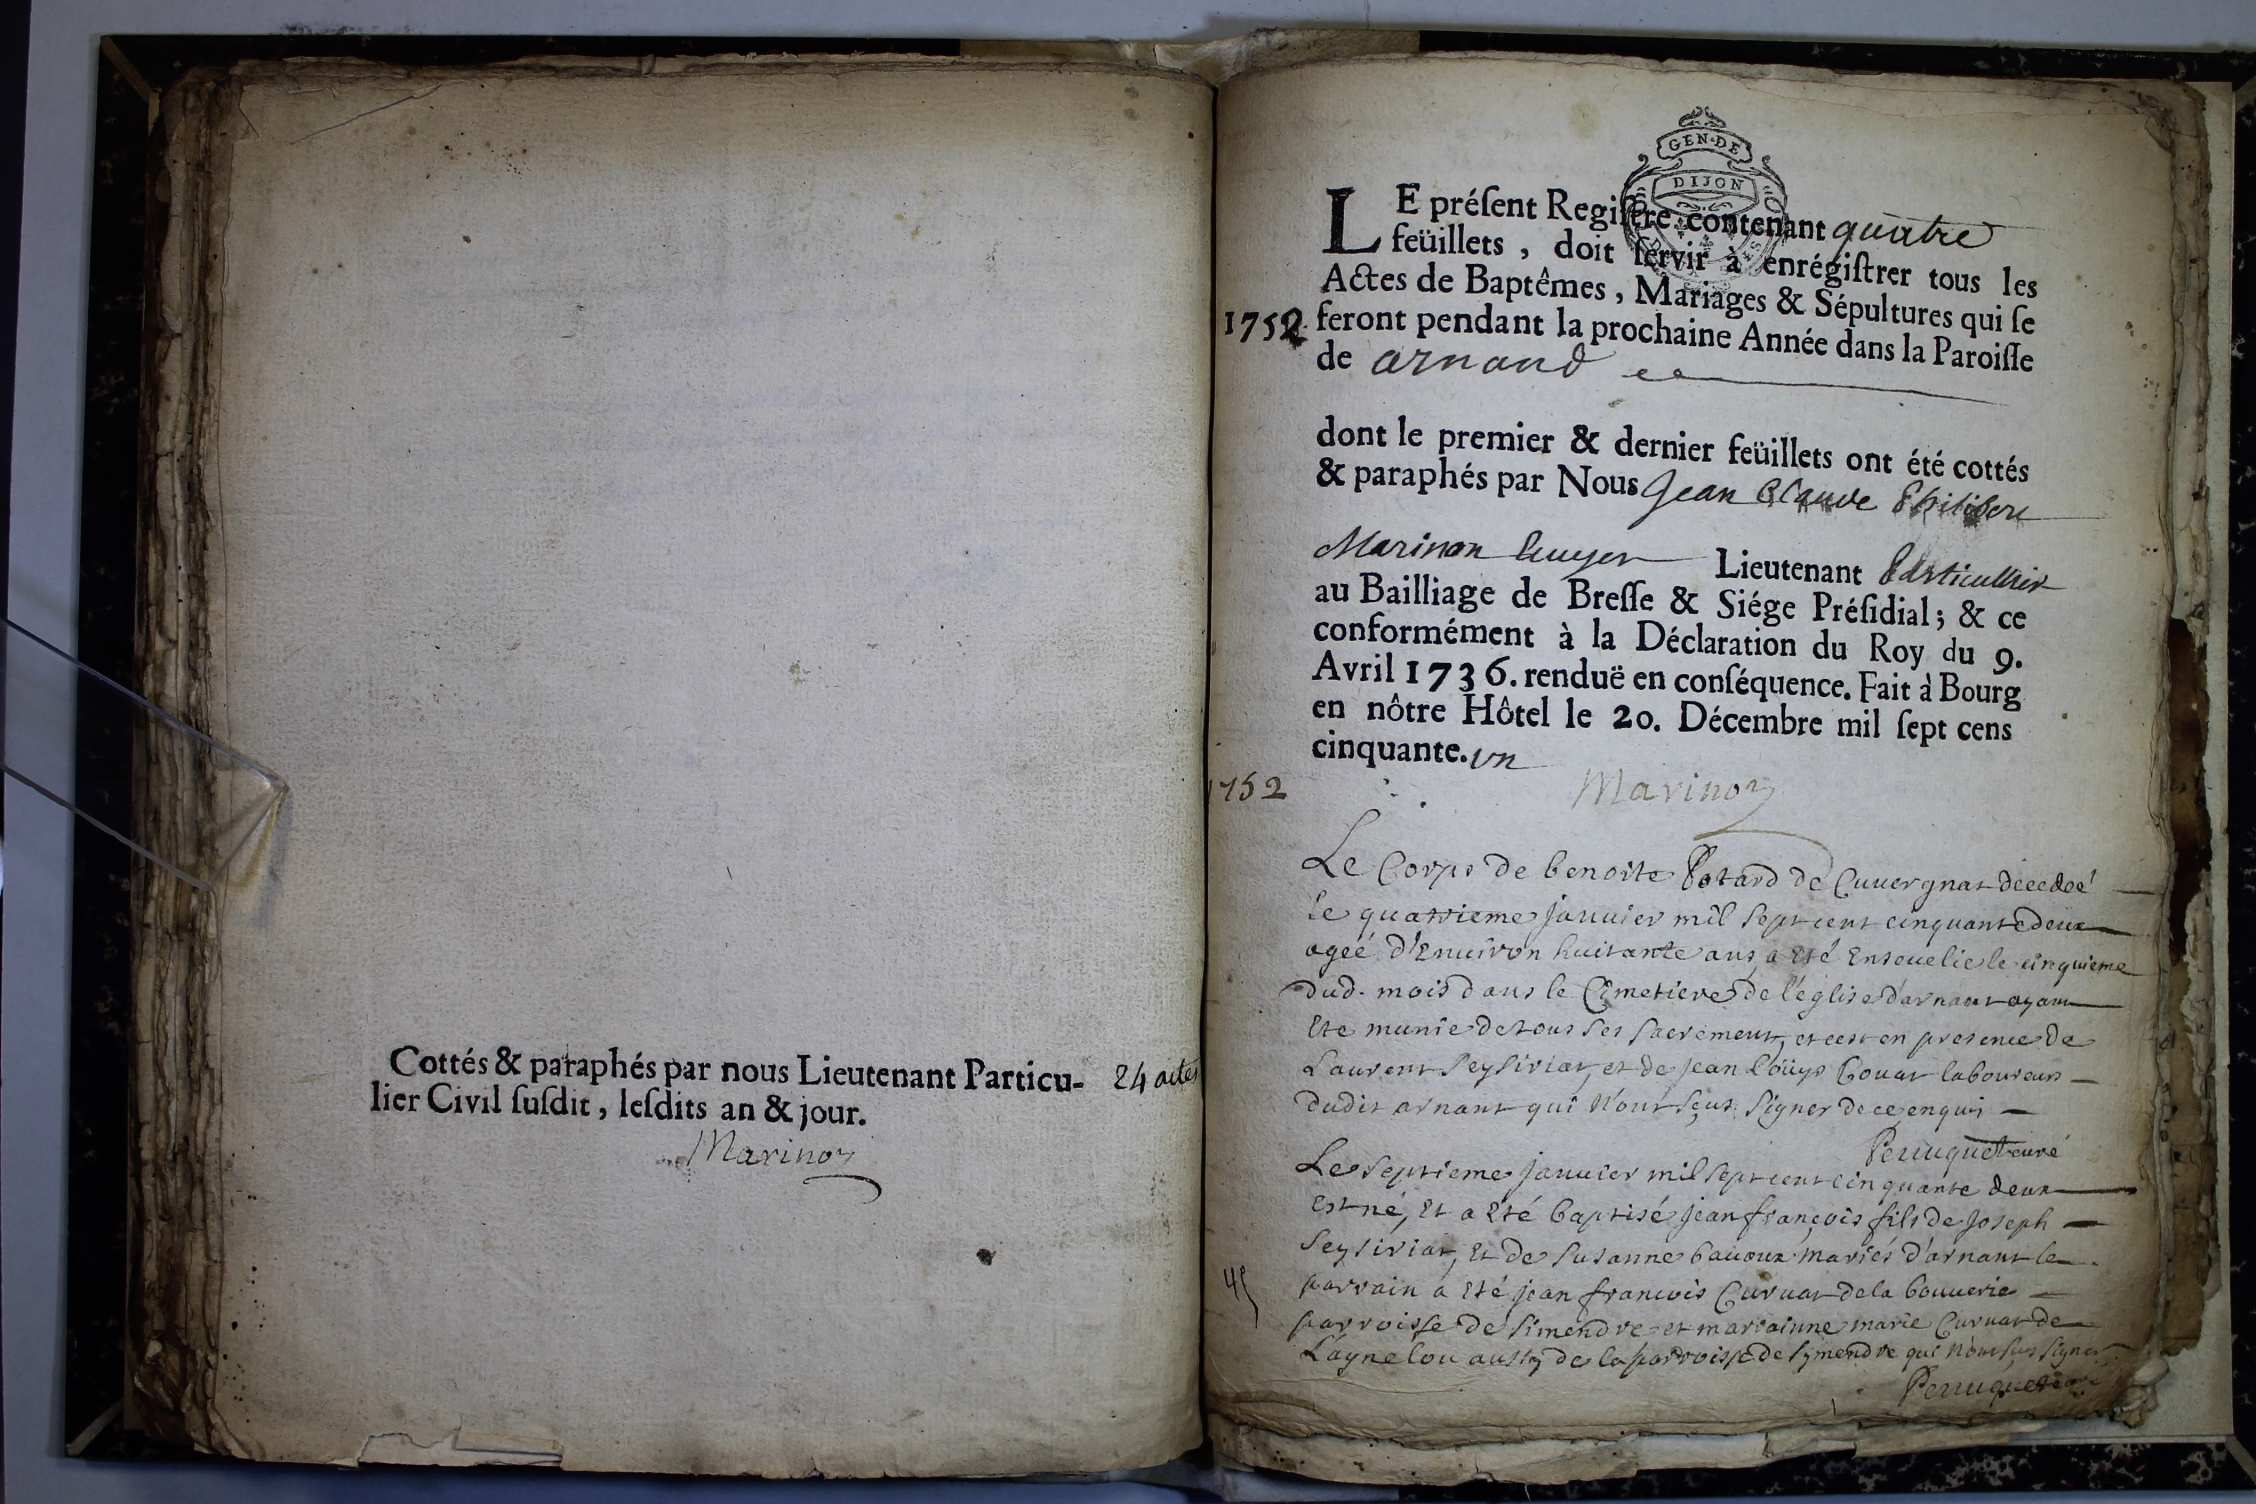 Cottés & paraphés par nous Lieutenant Particu-
lier Civil ſuſdit, leſdits an & jour.
24 actes
Marinon
GEN·DE
DIJON
LE préſent Regiſtre contenant quatre
feüillets, doit ſervir à enrégiſtrer tous les
Actes de Baptêmes, Mariages & Sépultures qui ſe
1752. feront pendant la prochaine Année dans la Paroiſſe
de arnand
dont le premier & dernier feüillets ont été cottés
& paraphés par Nous Jean Claude Philibert
Marinon Lieutenant Particullier
au Bailliage de Breſſe & Siége Préſidial; & ce
conformément à la Déclaration du Roy du 9.
Avril 1736. renduë en conſéquence. Fait à Bourg
en nôtre Hôtel le 20. Décembre mil ſept cens
cinquante. un
1752
Marinon
Le Corps de benoite Potard de Cuuergnat decedeé
le quatrieme januier mil sept cent cinquante deux
ageé d'Enuiron huitante ans, a Eté Enseuelie le cinquieme
dud. mois dans le Cimetiere de l'église d'arnant ayant
Ete munie de tous ses sacrement, et cest en presence de
Laurent Seysiriat, et de jean loüys Gouat laboureurs
dudit arnant qui n'ont sçut signer de ce enquis
Perruquet curé
Le septieme januier mil sept cent cinquante deux
Est né, Et a Eté baptisé jean françois fils de joseph
Seysiriat, Et de Susanne bauoux mariés d'arnant le
parrain a Eté jean francois Curuat de la bouuerie
parroisse de simendre et marrainne marie Curuat de
L'aynelou aussy de la parroisse de symendre qui n'ont sçu signer
Perruquet curé